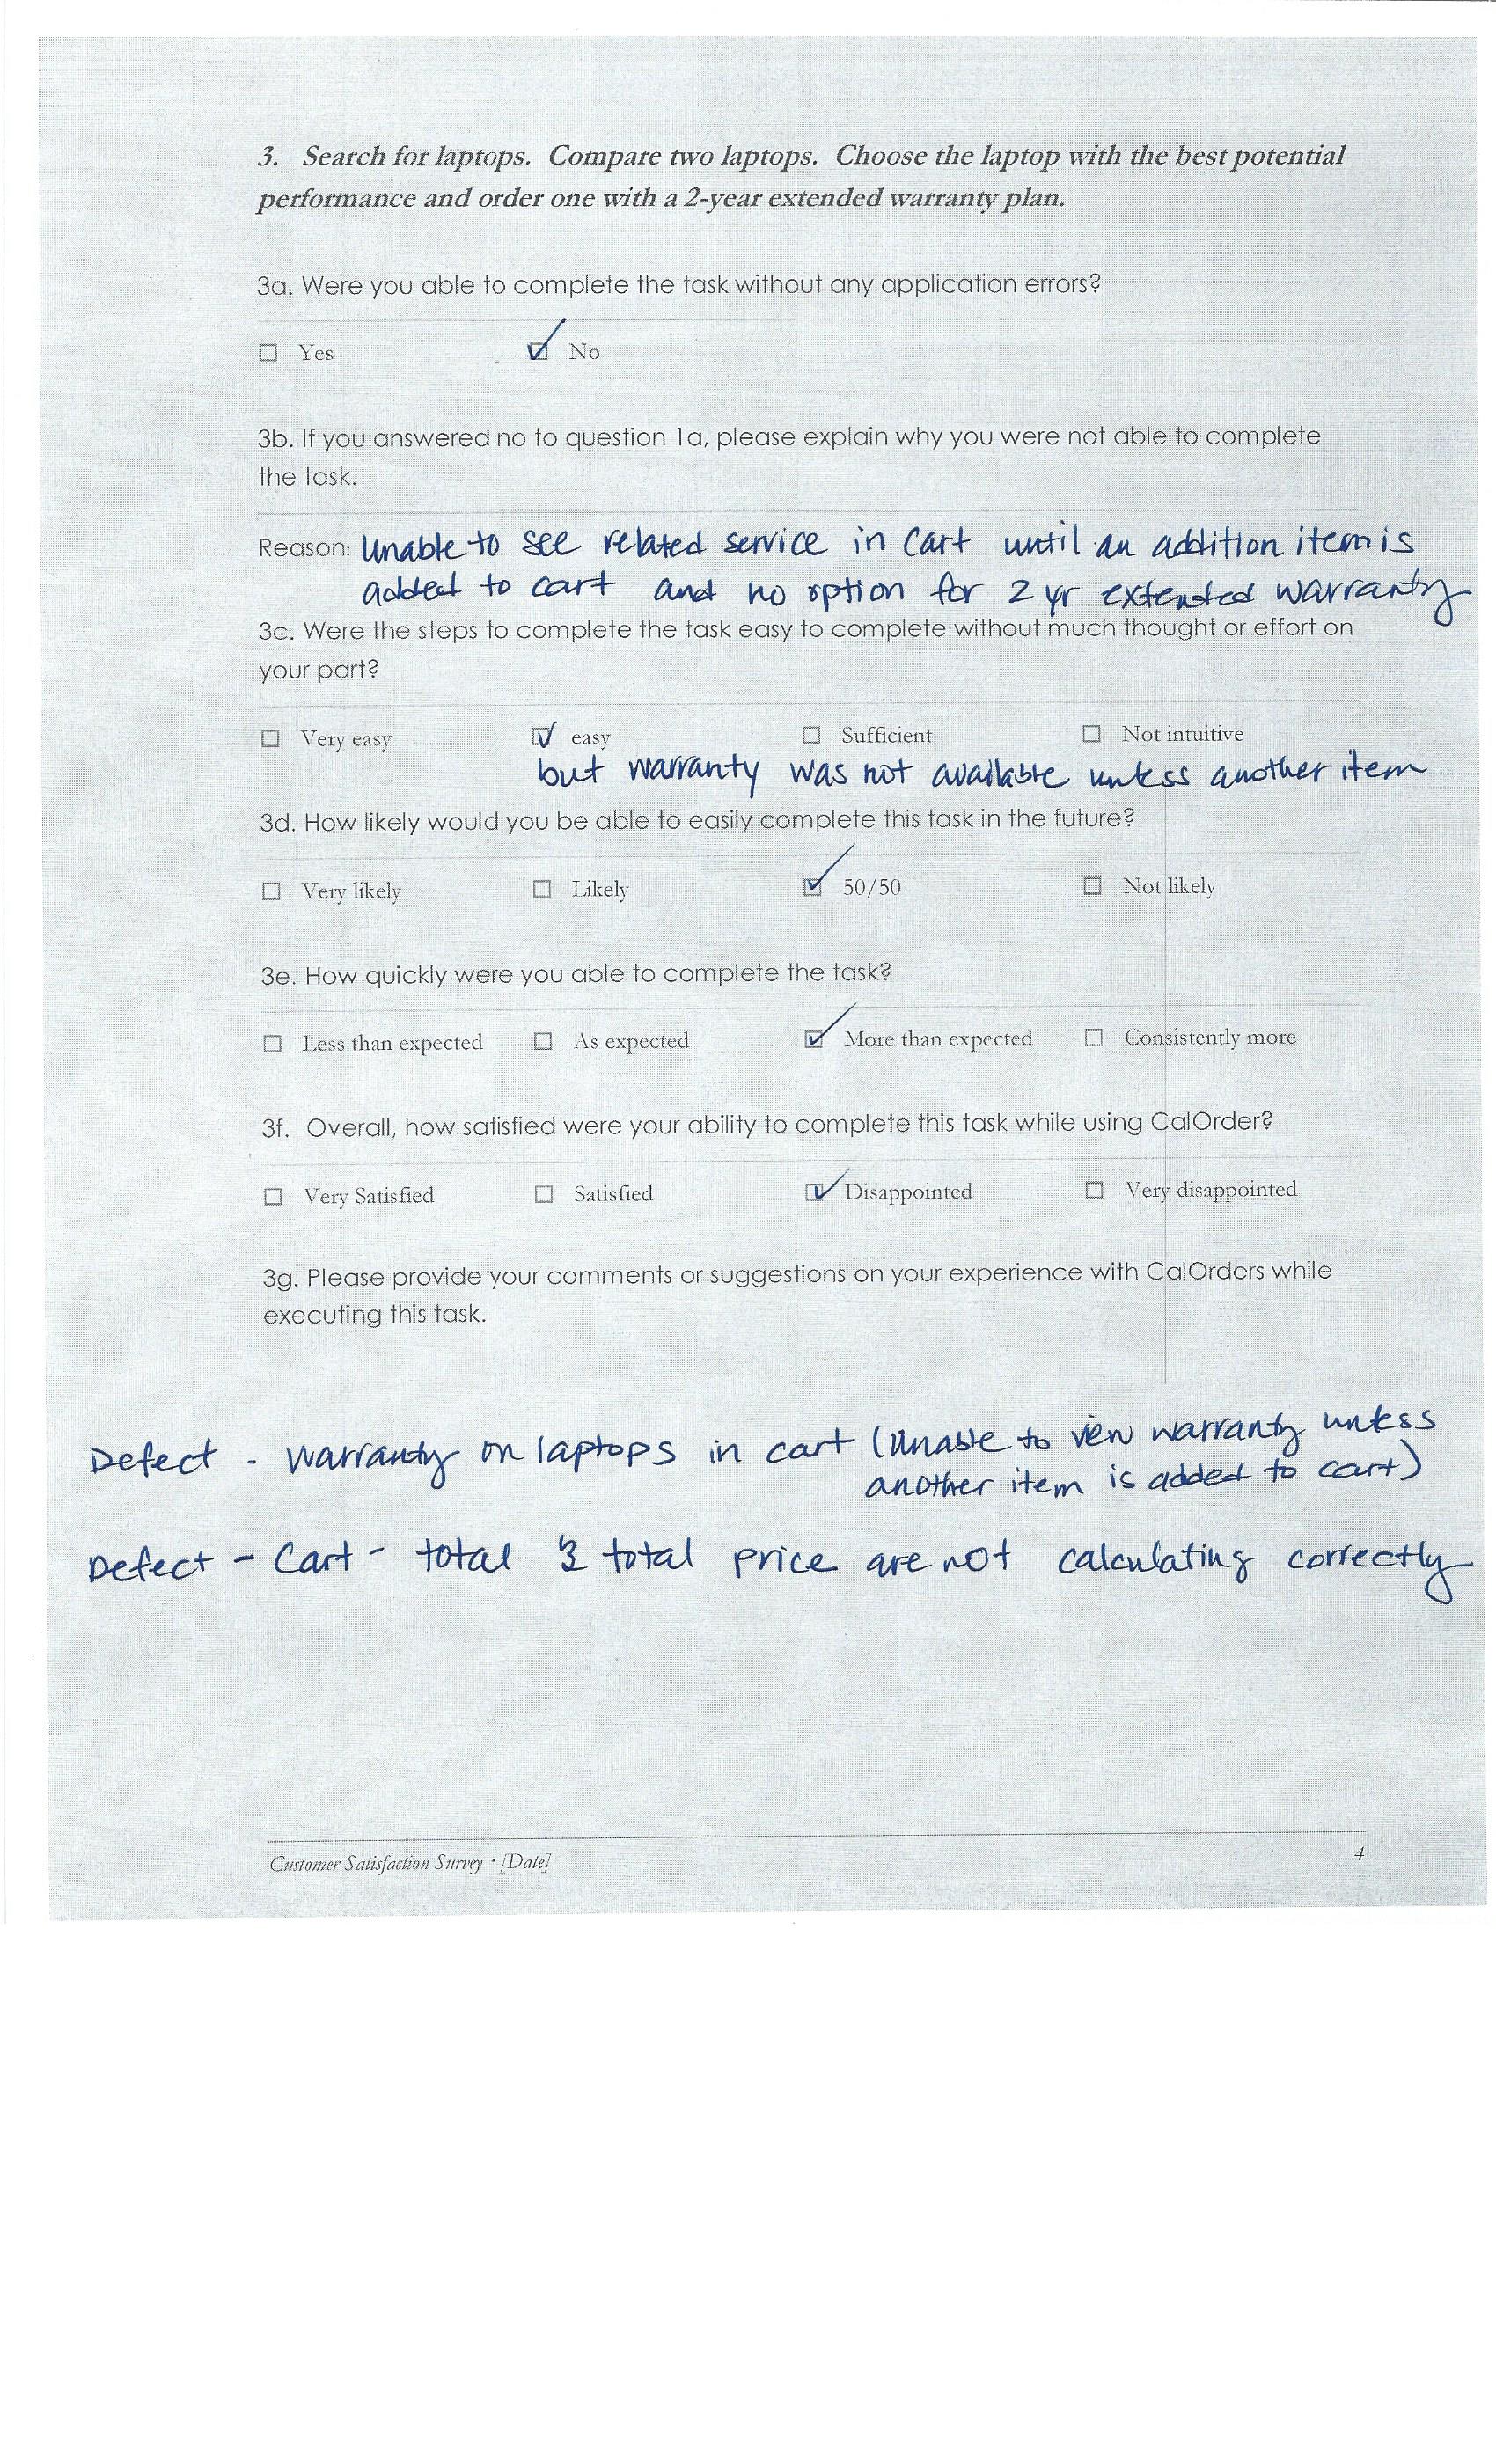 3. Search for laptops. Compare two laptops. Choose the laptop with the best potential
performance and order one with a 2-year extended warranty plan.
3a. Were you able to complete the task without any application errors?
☐ Yes ☑ No
3b. If you answered no to question 1a, please explain why you were not able to complete
the task.
Reason: Unable to see related service in cart until an addition item is
added to cart and no option for 2 yr extended warranty
3c. Were the steps to complete the task easy to complete without much thought or effort on
your part?
☐ Very easy ☑ easy ☐ Sufficient ☐ Not intuitive
but warranty was not available unless another item
3d. How likely would you be able to easily complete this task in the future?
☐ Very likely ☐ Likely ☑ 50/50 ☐ Not likely
3e. How quickly were you able to complete the task?
☐ Less than expected ☐ As expected ☑ More than expected ☐ Consistently more
3f. Overall, how satisfied were your ability to complete this task while using CalOrder?
☐ Very Satisfied ☐ Satisfied ☑ Disappointed ☐ Very disappointed
3g. Please provide your comments or suggestions on your experience with CalOrders while
executing this task.
Defect - Warranty on laptops in cart (Unable to view warranty unless
another item is added to cart)
Defect - Cart - total & total price are not calculating correctly
Customer Satisfaction Survey • [Date] 4